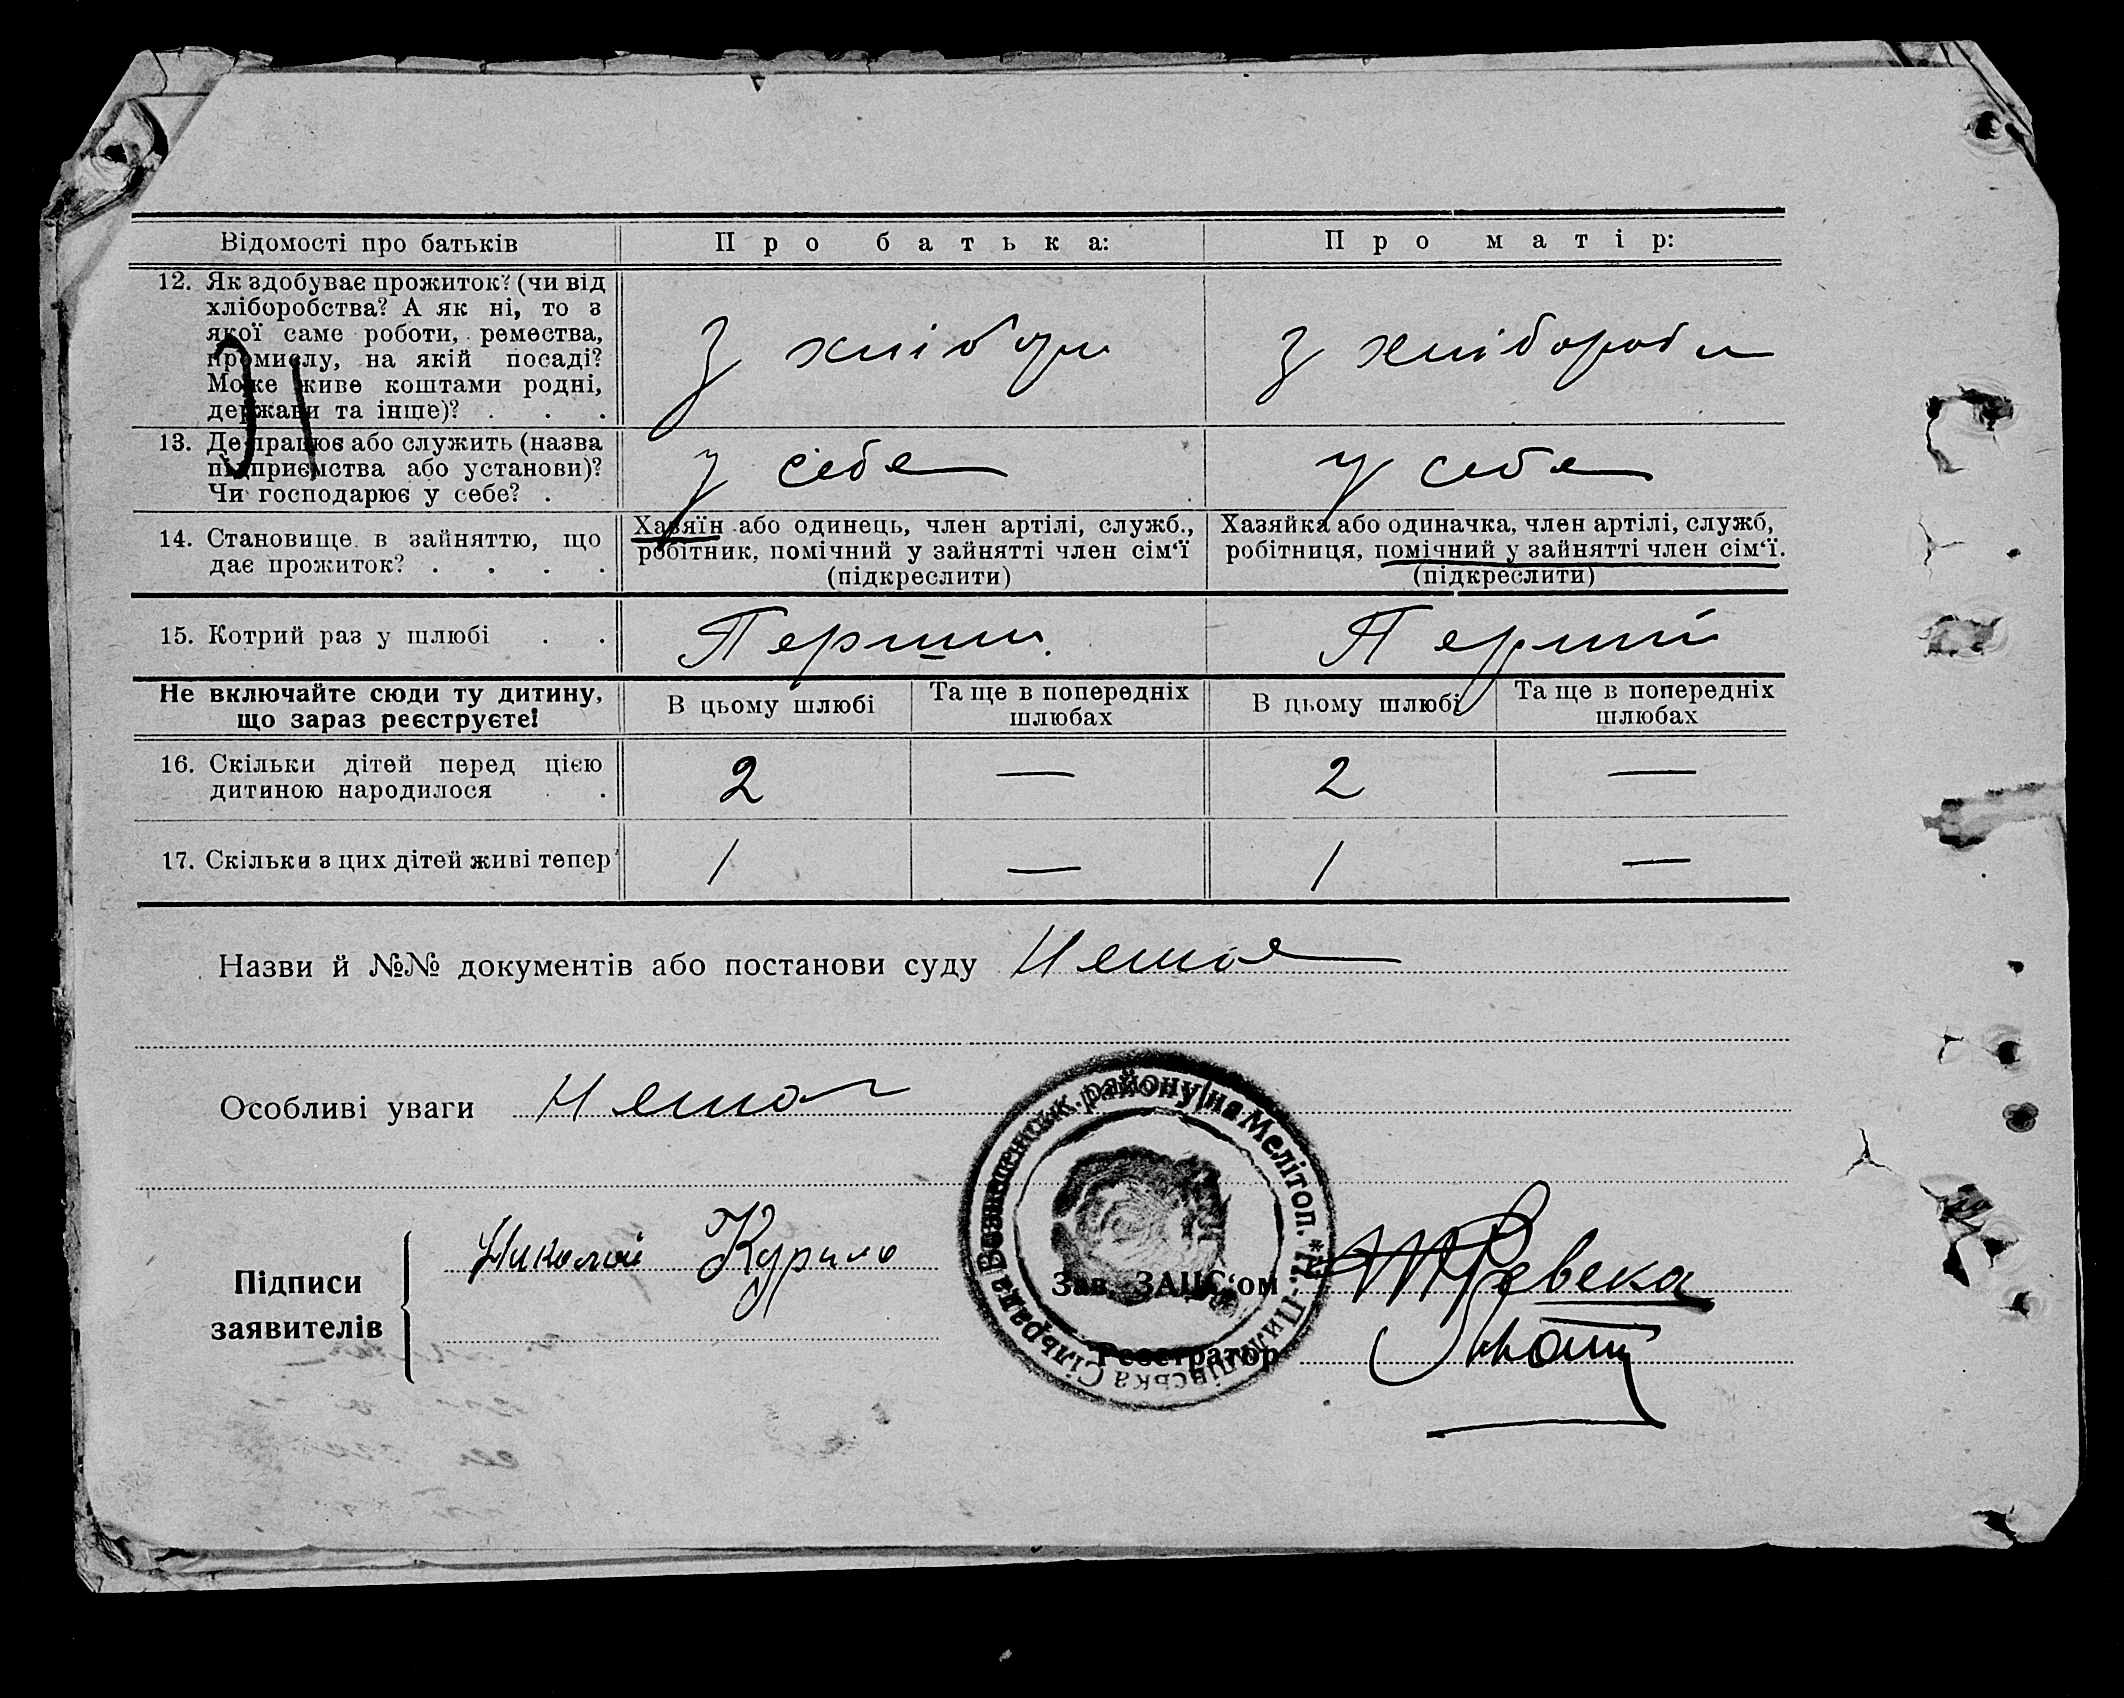 Відомості про батьків
Про батька:
Про матір:
12. Як здобуває прожиток? (чи від
хліборобства? А як ні, то з
якої саме роботи, ремества,
промислу, на якій посаді?
Може живе коштами родні,
держави та інше)? . . .
З хлібор
З хлібороби
31
13. Де працює або служить (назва
підприємства або установи)?
Чи господарює у себе? .
у себе
у себе
14. Становище в зайняттю, що
дає прожиток? . . . .
Хазяїн або одинець, член артілі, служб.,
робітник, помічний у зайнятті член сім‘ї
(підкреслити)
Хазяйка або одиначка, член артілі, служб,
робітниця, помічний у зайнятті член сім‘ї.
(підкреслити)
15. Котрий раз у шлюбі . .
Перший
Перший
Не включайте сюди ту дитину,
що зараз реєструєте!
В цьому шлюбі
Та ще в попередніх
шлюбах
В цьому шлюбі
Та ще в попередніх
шлюбах
16. Скільки дітей перед цією
дитиною народилося . .
2 — 2 —
17. Скільки з цих дітей живі тепер
1 — 1 —
Назви й №№ документів або постанови суду Немає
Особливі уваги Немає
Підписи
заявителів
Николай Курило
Зав. ЗАЦС‘ом
Реєстратор
Сільрада Вознесенськ. району на Мелітоп.